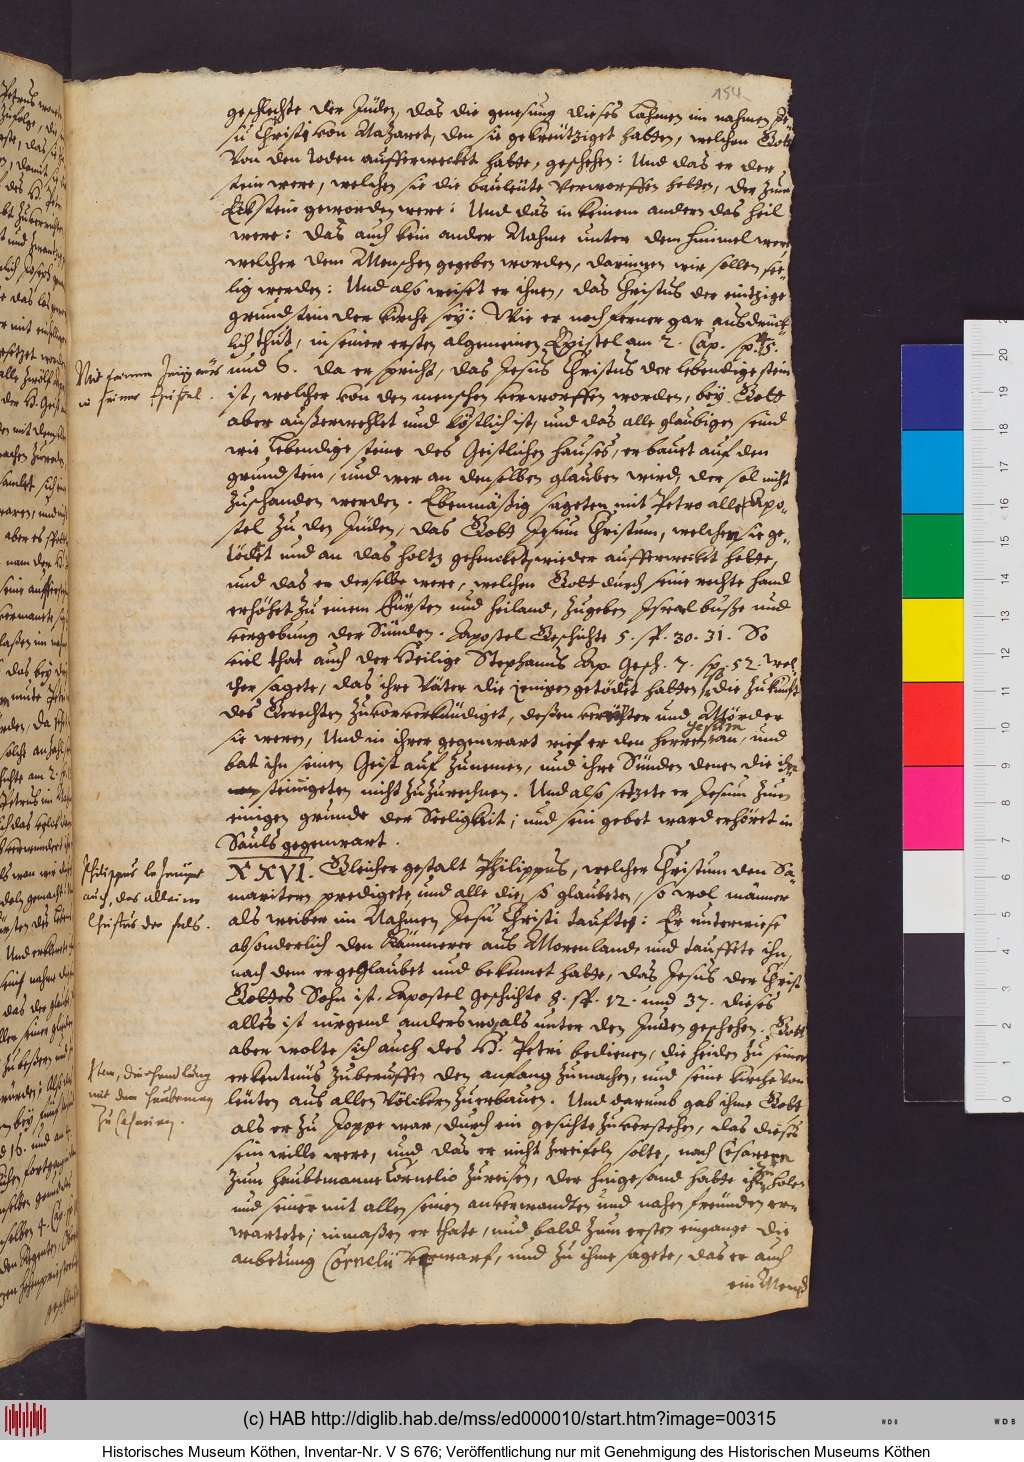 154
geschlechte der Jüden, das die genesung dieses Lahmen im nahmen Je-
su Christi von Nazaret, den sie gekreutziget hatten, welchen Gott
Von den Toden aufferwecket hatte, geschehen: Und das er der
stein were, welchen sie die bauleüte verworffen hetten, der zum
Eckstein geworden were: Und das in keinem andern das heil
were: das auch kein ander Nahme unter dem himmel were
welcher dem Menschen gegeben worden, darinnen wir sollen see-
lig werden: Und also weiset er ihnen, das Christus der eintzige
grundstein der kirche sey: Wie er noch ferner gar ausdrück-
lich thut, in seiner ersten algemeinen Epistel am 2. Cap. sp. 4. 5.
und 6. da er spricht, das Jesus Christus der lebendige stein
ist, welcher von den menschen verworffen worden, bey Gott
aber außerwehlet und köstlich ist, und das alle glaubigen seind
wie Lebendige steine des Geistlichen hauses, erbauet auf den
grundstein, und wer an denselben glauben wird, der sol nicht
zuschanden werden. Ebenmäßig sageten mit Petro alle Apo-
stel zu den Jüden, das Gott Jesum Christum, welchen sie ge-
tödet und an das holtz gehencket, wieder aufferweckt hette,
und das er derselbe were, welchen Gott durch seine rechte hand
erhöhet zu einem Fürsten und heiland, zugeben Israel buße und
vergebung der Sünden. Apostel Geschichte 5. sp. 30. 31. So
viel that auch der Heilige Stephanus Ap. Gesch. 7. sp. 52. wel-
cher sagete, das ihre Väter die jenigen getödet hatten, so die zukunft
des Gerechten zuvorverkündiget, deßen verrähter und Mörder
sie weren, Und in ihrer gegenwart rief er den herren Jesum an, und
bat ihn seinen Geist auf zunemen, und ihre Sünden denen die ihn
steinigeten nicht zuzurechnen. Und also setzete er Jesum zum
einigen grunde der Seeligkeit; und sein gebet ward erhöret in
Sauls gegenwart.
XXVI. Gleicher gestalt Philippus, welcher Christum den Sa-
maritern predigete, und alle die, so glaubeten, so wol männer
als weiber im Nahmen Jesu Christi tauftes: Er unterwiese
absonderlich den Kämmerer aus Morenland, und tauffete ihn,
nach dem er geglaubet und bekennet hatte, das Jesus der Christ
Gottes Sohn ist. Apostel geschichte 8. sp. 12. und 37. dieses
alles ist nirgend anderswo, als unter den Juden geschehen. Gott
aber wolte sich auch des H. Petri bedienen, die heiden zu seiner
erkentnüs zuberuffen den anfang zumachen, und seine kirche von
leüten aus allen Völckern zuerbauen. Und darumb gab ihme Gott
als er zu Joppe war, durch ein gesichte zuverstehen, das dieses
sein wille were, und das er nicht zweifeln solte, nach Cesareen
zum haubtmanne Cornelio zureisen, der hingesand hatte ihn zu holen
und seiner mit allen seinen anverwandten und nahen freünden er-
wartete; inmaßen er thate, und bald zum ersten eingange die
anbetung Cornelii verwarf, und zu ihme sagete, das er auch
ein Mensch
in seiner Epistel.
Philippus
auch, das allein
Christus der fels.
Item, die handlung
mit dem haubtman
zu Cesarien.
20
19
18
17
16
15
14
13
12
11
10
9
8
7
6
5
4
3
2
1
0
(c) HAB http://diglib.hab.de/mss/ed000010/start.htm?image=00315
Historisches Museum Köthen, Inventar-Nr. V S 676; Veröffentlichung nur mit Genehmigung des Historischen Museums Köthen